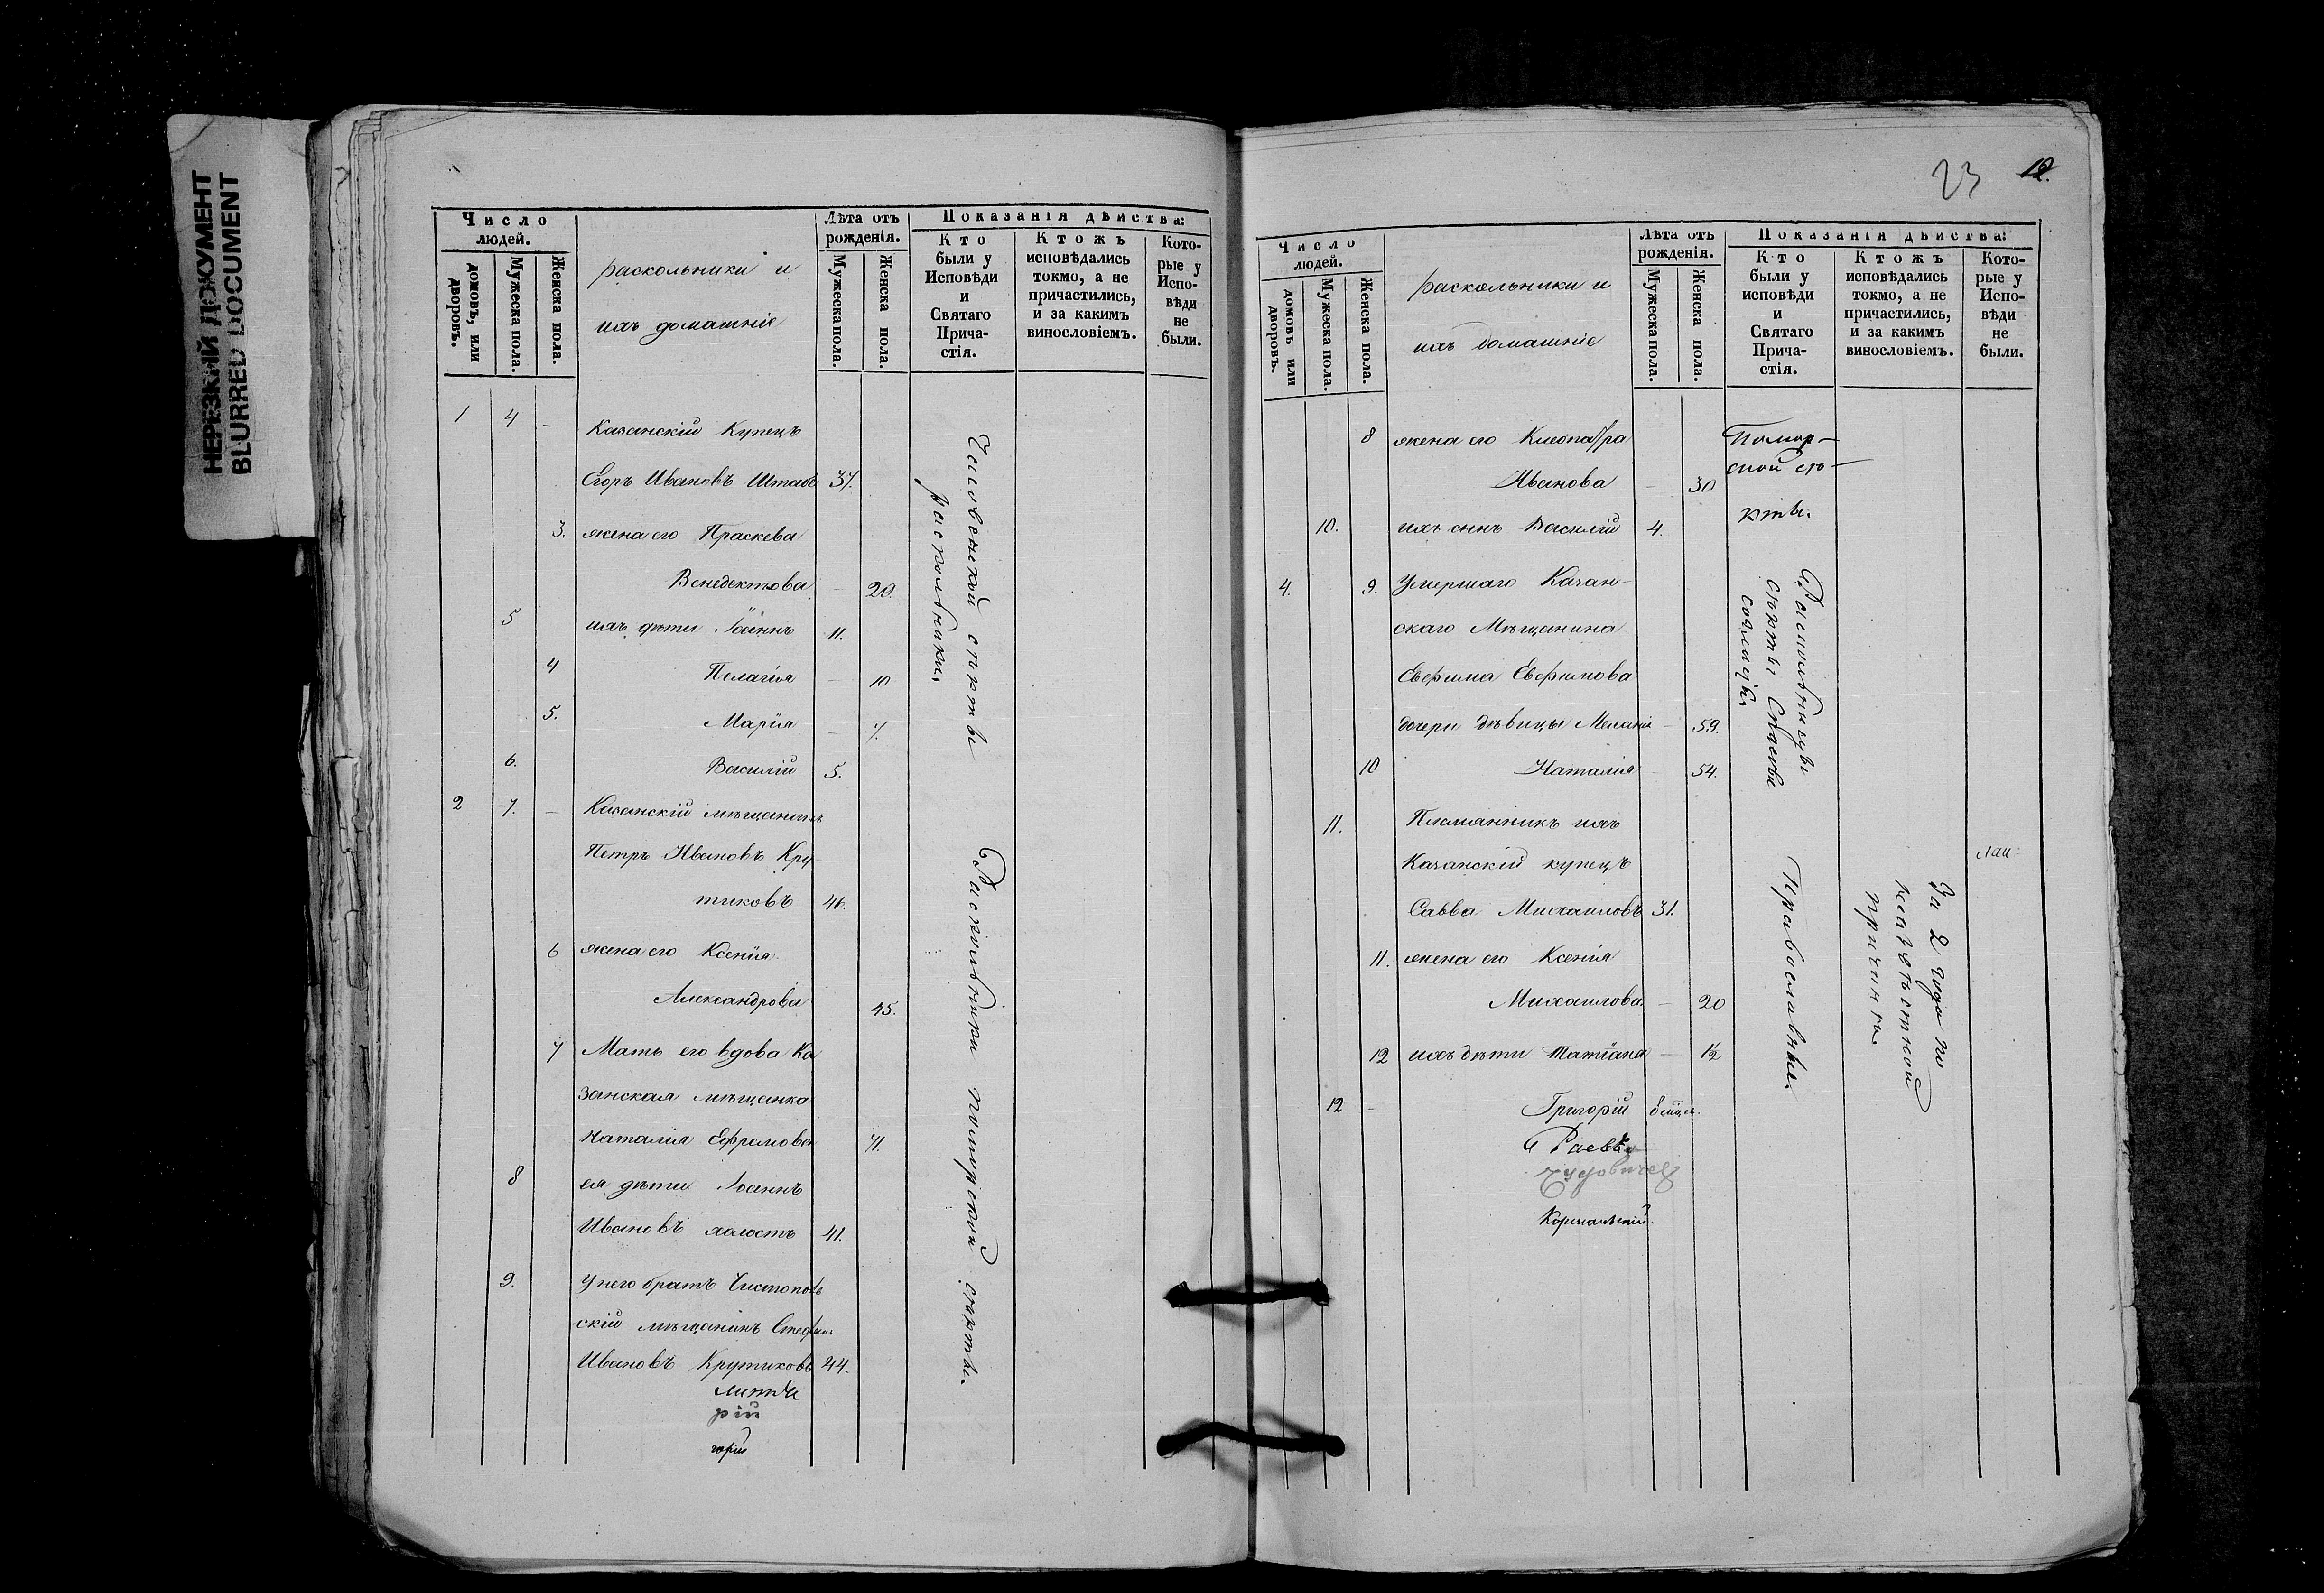 НЕРЕЗКИЙ ДОКУМЕНТ
BLURRED DOCUMENT
Число людей.
домовъ, или дворовъ.
Мужеска пола.
Женска пола.
раскольники и
ихъ домашніе
Лѣта отъ рожденія.
Мужеска пола.
Женска пола.
Показанія дѣйства:
Кто были у Исповѣди и Святаго Прича-стія.
Ктожъ исповѣдались токмо, а не причастились, и за какимъ винословіемъ.
Кото-рые у Испо-вѣди не были.
1 4 - Казанскій Купецъ
Егоръ Ивановъ 37.
3. жена его Праскева
Венедектова - 29.
5 ихъ дѣти Іоаннъ 11.
4 Пелагія - 10
5. Марія - 7.
6. Василій 5.
раскольники.
2 7. - Казанскій мѣщанинъ
Петръ Ивановъ Кру-
тиковъ 46.
6 жена его Ксенія
Александрова 45.
7 Мать его вдова Ка
занская мѣщанка
Наталія Ефремова 71.
8 ея дѣти Іоаннъ
Ивановъ холостъ 41.
9. у него братъ Чистополь
скій мѣщанинъ Стефанъ
Ивановъ Крутиковъ 44.
Раскольники поморской секты.
рій
горій
23 12.
Число людей.
домовъ или дворовъ.
Мужеска пола.
Женска пола.
раскольники и
ихъ домашніе
Лѣта отъ рожденія.
Мужеска пола.
Женска пола.
Показанія дѣйства:
Кто были у исповѣди и Святаго Прича-стія.
Ктожъ исповѣдались токмо, а не причастились, и за какимъ винословіемъ.
Кото-рые у Испо-вѣди не были.
8 жена его Клеопатра
Иванова - 30
Помор-
ской се-
кты.
10. ихъ сынъ Василій 4.
4. 9. Умершаго Казан-
скаго Мѣщанина
Евфима Евфимова
дочери дѣвицы Меланія - 59.
10 Наталія - 54.
Раскольницы
секты
11. Племянникъ ихъ
Казанскій купецъ
Савва Михаиловъ 31.
11. жена его Ксенія
Михаилова - 20
12 ихъ дѣти Татіана - 1½
12 - Григорій
Православные.
За 2 года по
неизвѣстной
причинѣ